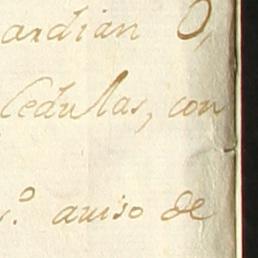 ardian O,
Cedulas, con
.º aviso de